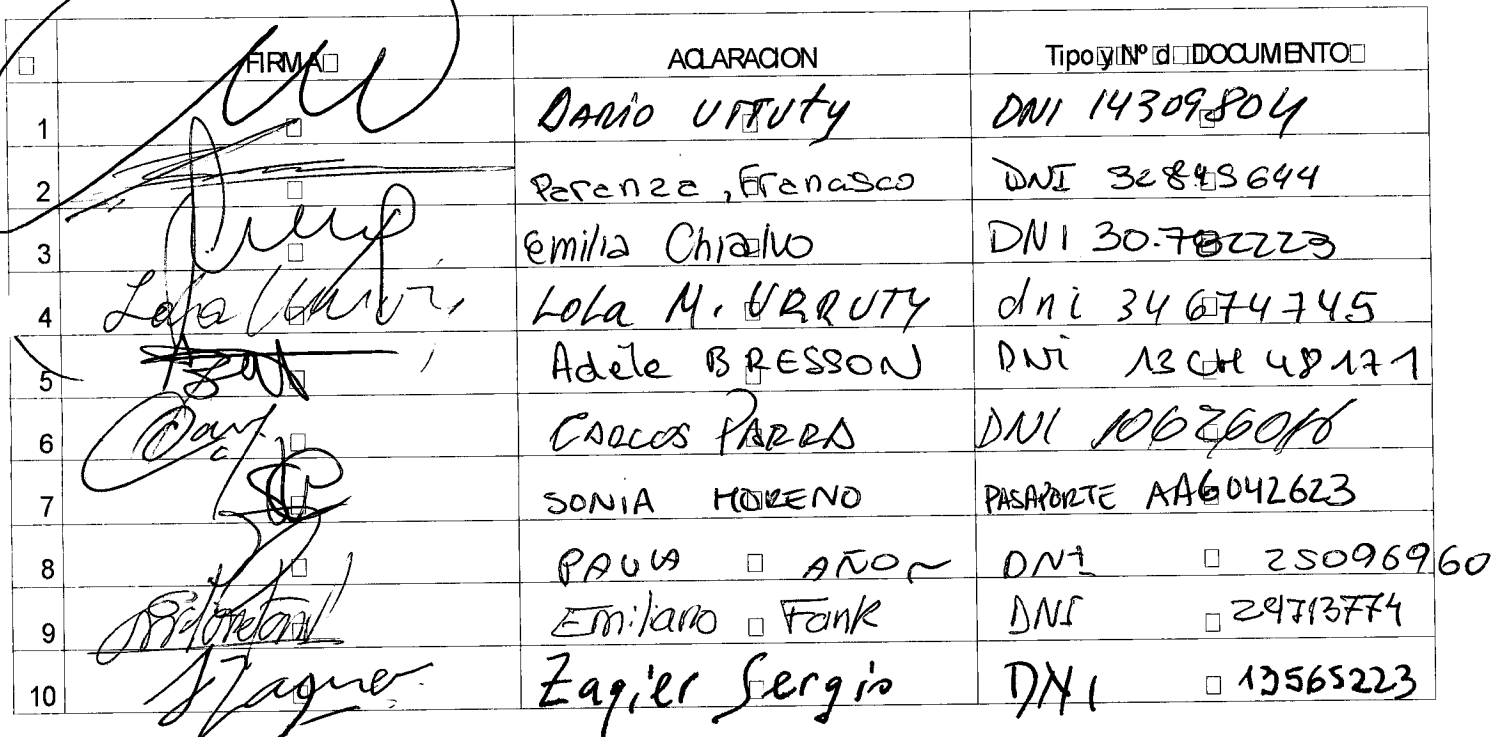 FIRMA ACLARACION Tipo y Nº d DOCUMENTO
1 DARIO URRUTY DNI 14309804
2 Peranze, Francisco DNI
3 Emilia Chialvo DNI
4 Lola M. URRUTY dni 34674745
5 Adèle BRESSON DNi 13CH48171
6 CARLOS PARRA DNI
7 SONIA MORENO PASAPORTE AA6042623
8 PAULA AÑON DNI 25096960
9 Emiliano Fank DNI
10 Zagier Sergio DNI 13565223